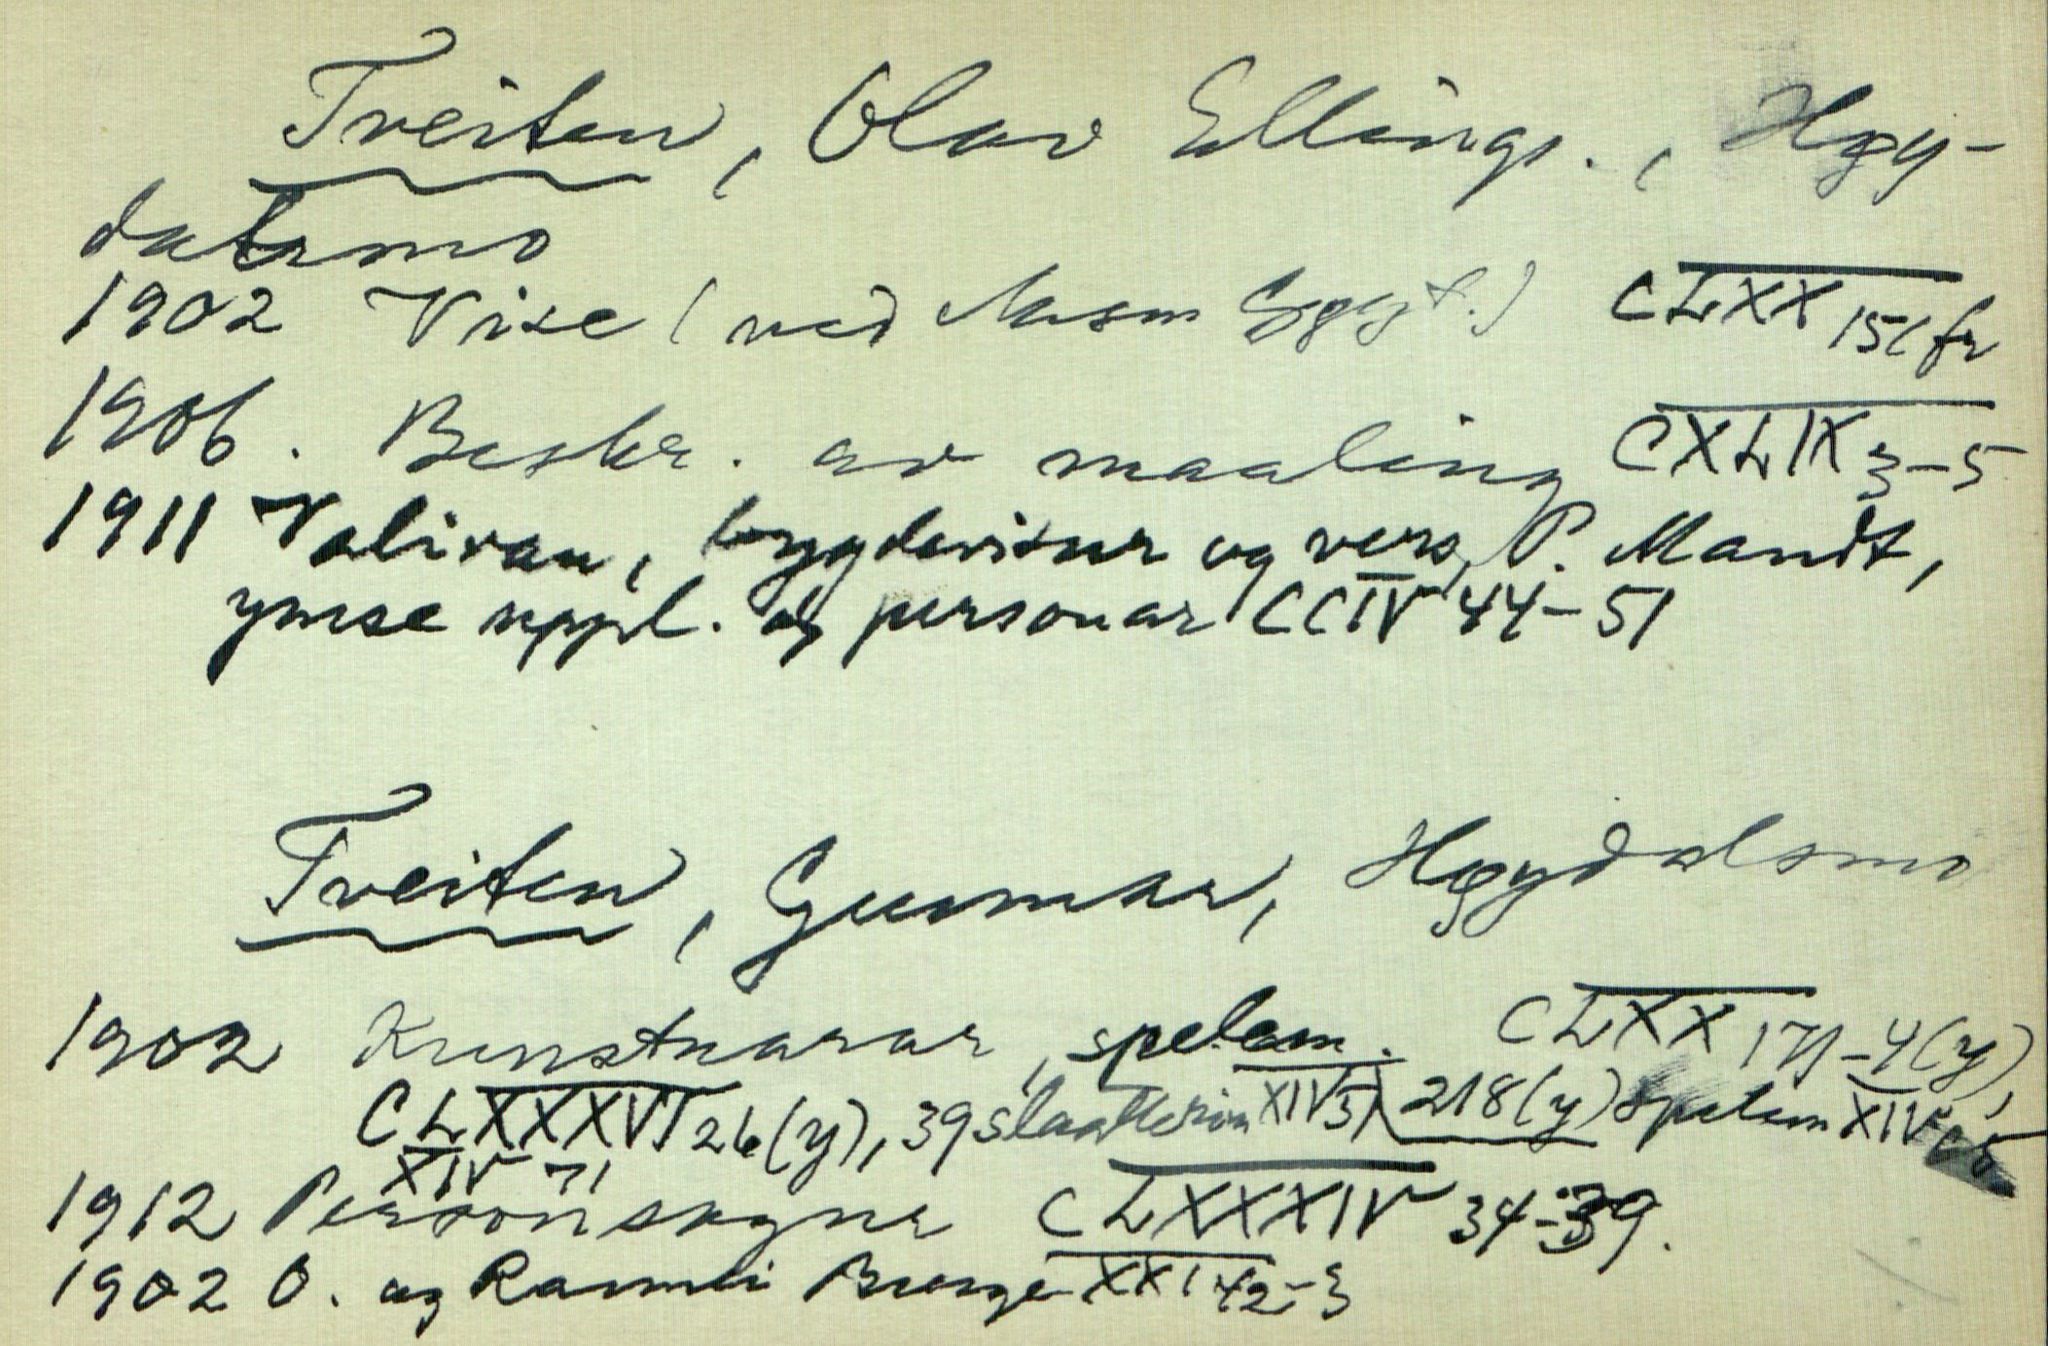 Tveiten, Olav Ellings., Høy-
dalsmo
1902 Vise (ved Aasm Ggyt.) CLXX 151 fr
1906. Beskr. av maaling CXLIX 3-5
1911 Valivan, bygdevisur og vers, P. Mandt,
ymse uppl. og personar CCIV 44-51
Tveiten, Gunnar, Høydalsmo
1902 Kunstnarar, spelem. CLXX 171-4(y),
CLXXXVI 26(y), 39 slaatterim XIV 51 218(y) spelem XIV
XIV 71
1912 Personsogur CLXXXIV 34-39.
1902 O. og Rannei Borge XXI 42-3